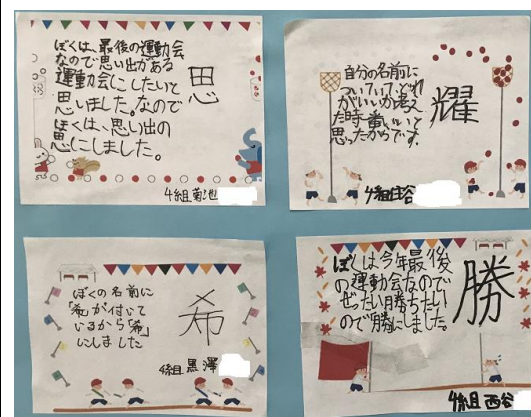 ぼくは、最後の運動会
なので思い出がある
運動会にしたいと
思いました。なので
ぼくは、思い出の
思にしました。
思
4組 菊池
自分の名前に
ついていて、どれ
がいいか考え
た時一番いいと
思ったからです。
耀
4組
ぼくの名前に
「希」が付いて
いるから「希」
にしました
希
4組 黒澤
ぼくは今年最後
の運動会なので
ぜったい勝ちたい
ので「勝」にしました。
勝
4組 西谷